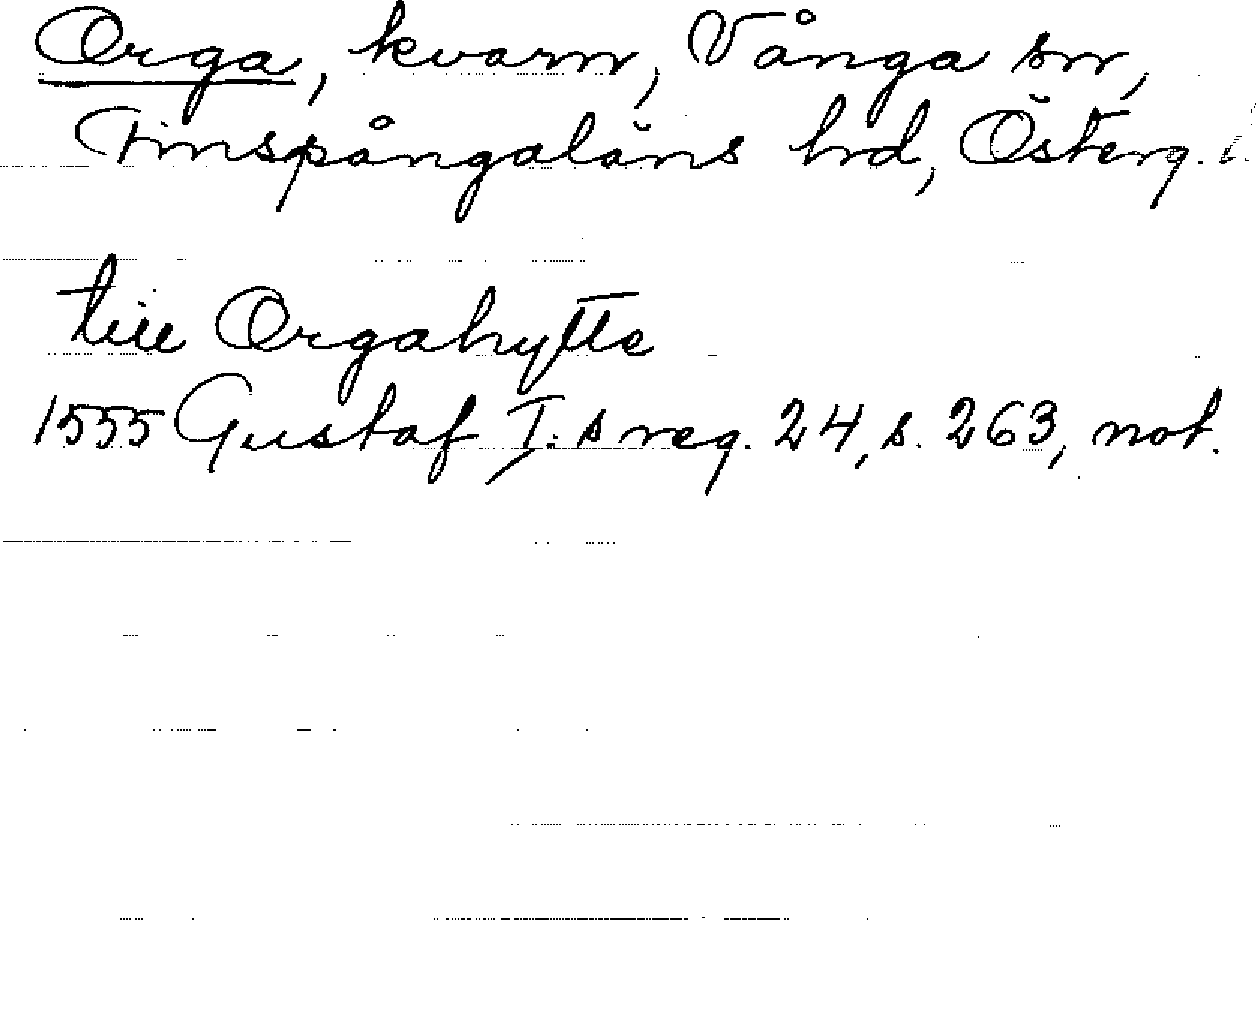 Orga, kvarn, Vånga sn,
Finspångaläns hrd, Österg. l.
till Orgahytte
1555 Gustaf I:s reg. 24, s. 263, not.